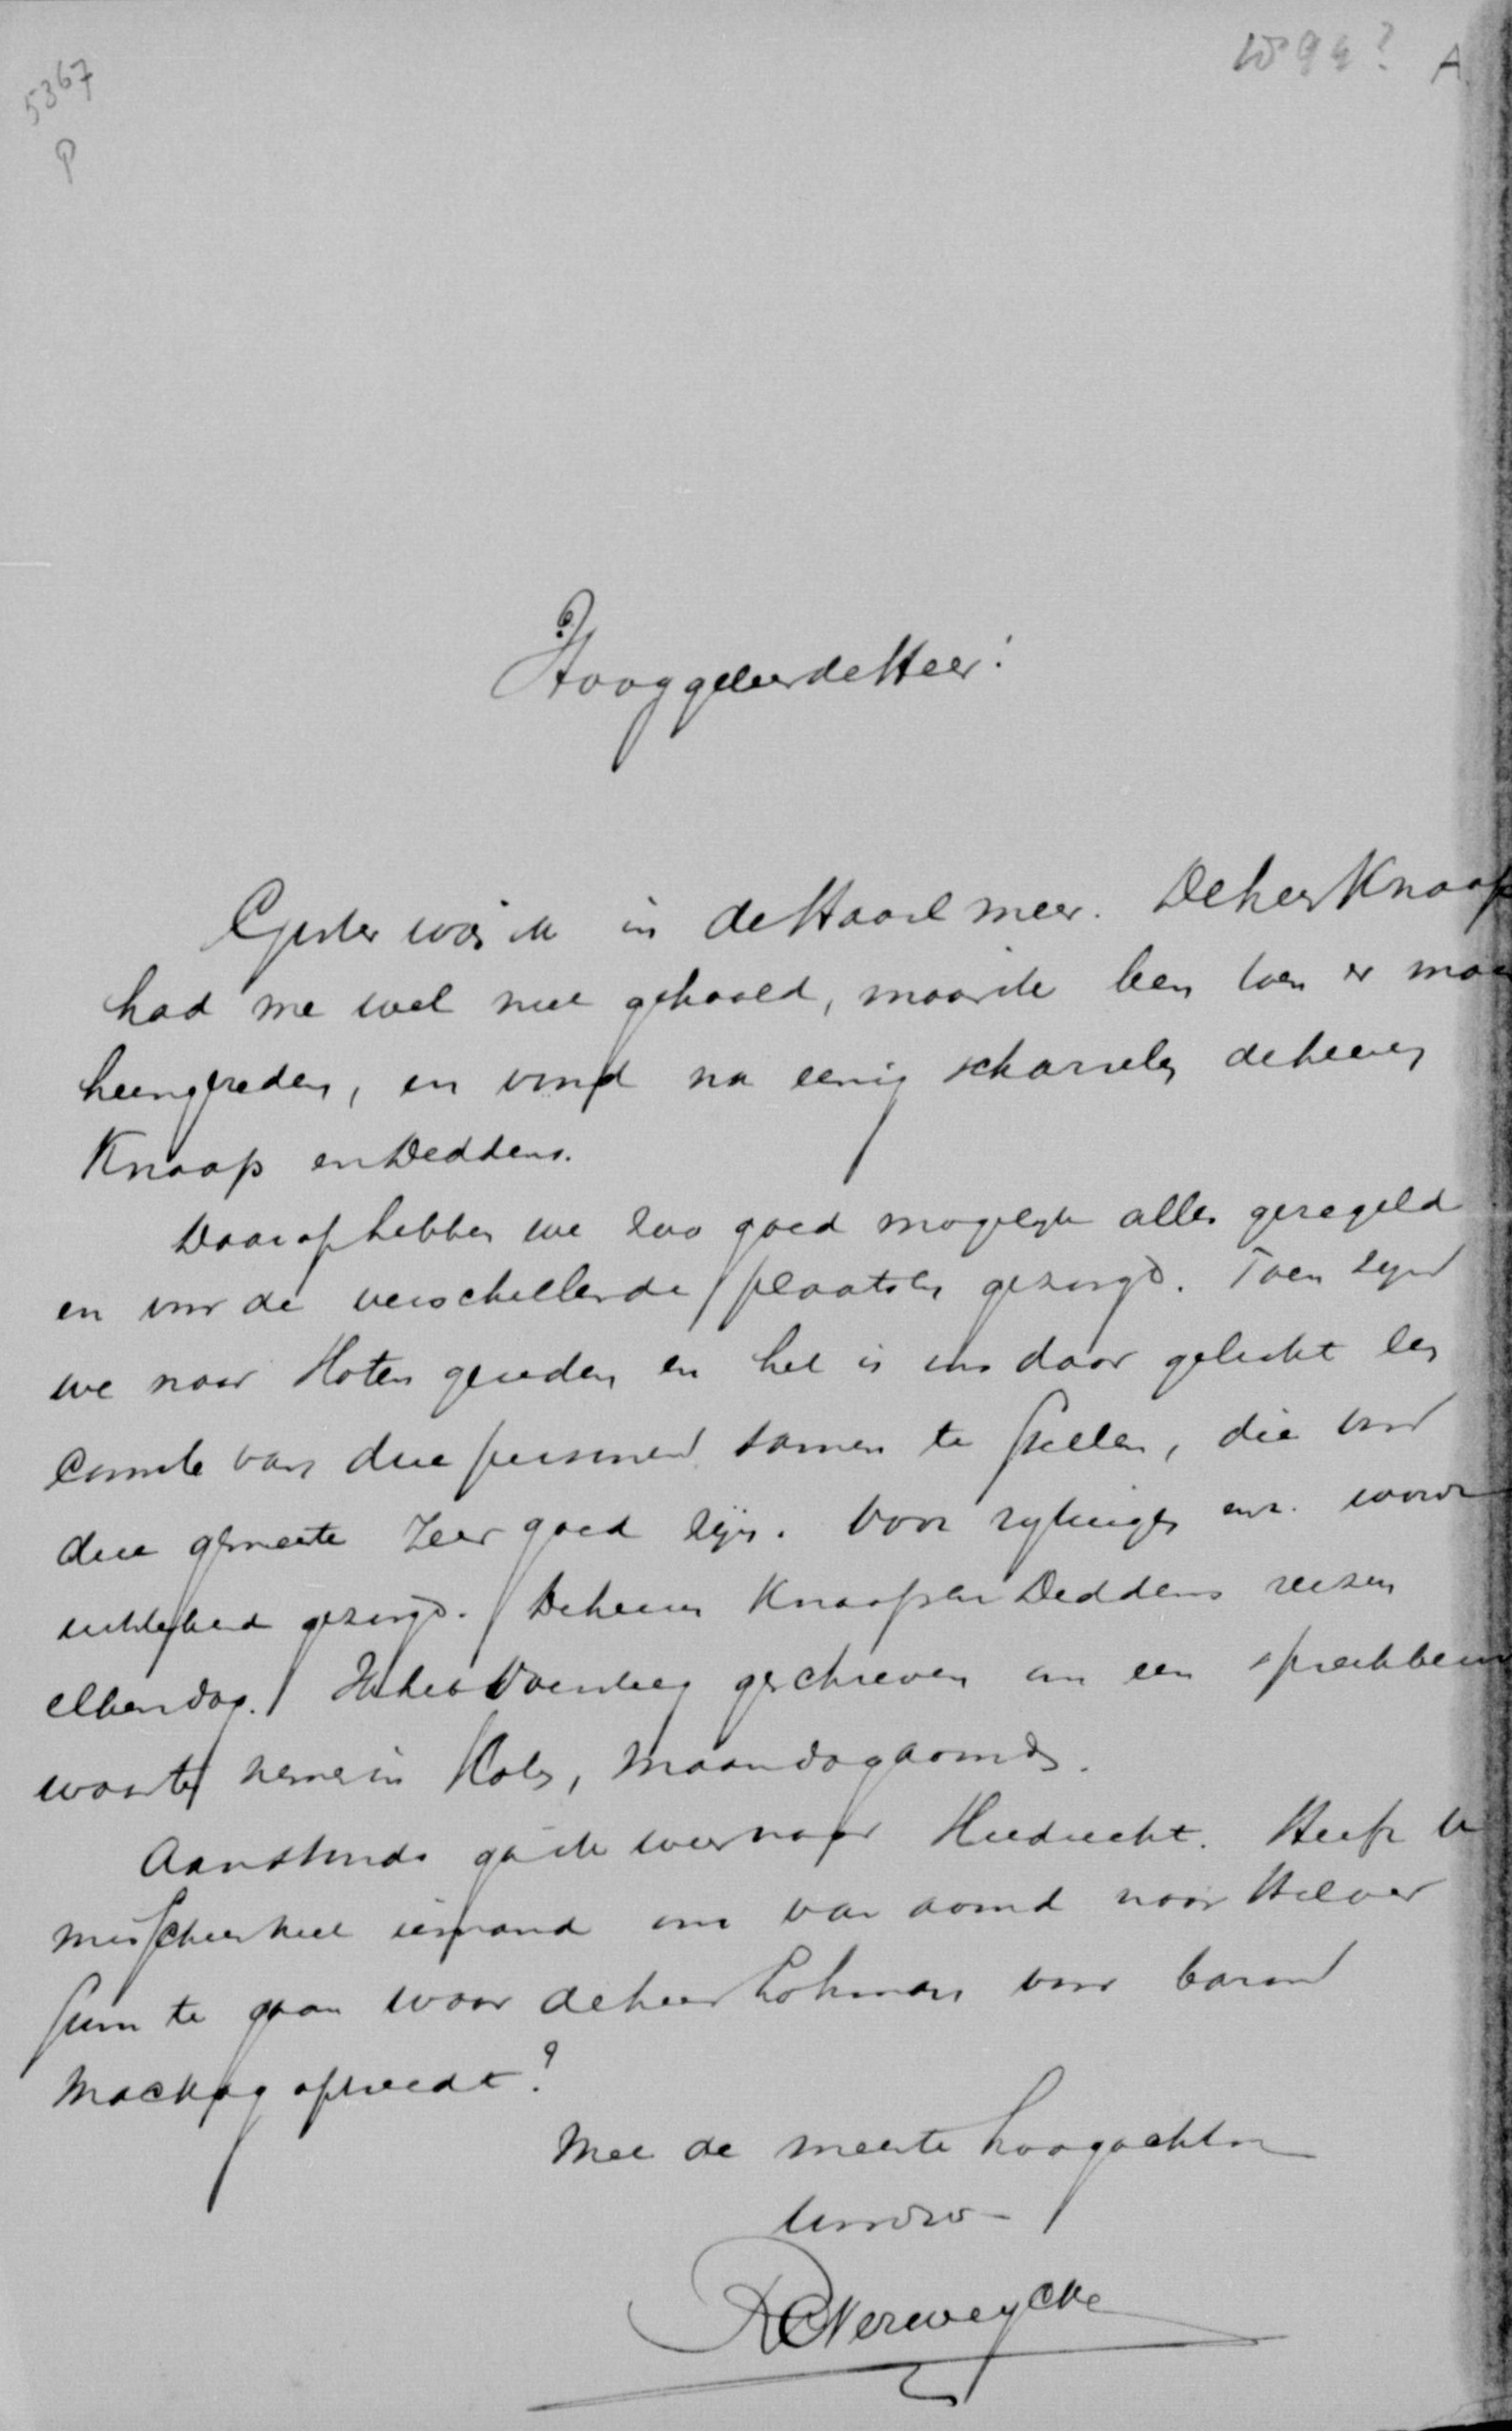 5367
P
1894? A.
Hooggeleerde Heer!
Gister was ik in de Haarlmeer. De heer Knaap
had me wel niet gehaald, maar ik ben toen er maar
heengereden, en vond na eenig scharrelen de heeren
Knaap en Deddens.
Daarop hebben we zoo goed mogelijk alles geregeld
en voor de verschillende plaatsen gezorgd. Toen zijn
we naar Sloten gereden en het is ons daar gelukt een
comite van drie personen samen te stellen, die voor
die gemeente zeer goed zijn. Voor rijtuigen enz. wordt
gezorgd. De heeren Knaap en Deddens reizen
elken dag. Ik heb geschreven om een spreekbeurt
waar te nemen in Sloten, Maandagavond.
Aanstonds ga ik weer naar Mijdrecht. Heeft U
misschien niet iemand om van avond naar Hilver
sum te gaan waar de heer Lohman voor baron
Mackay optreedt?
Met de meeste hoogachting
Uw dw
RC Verweyck